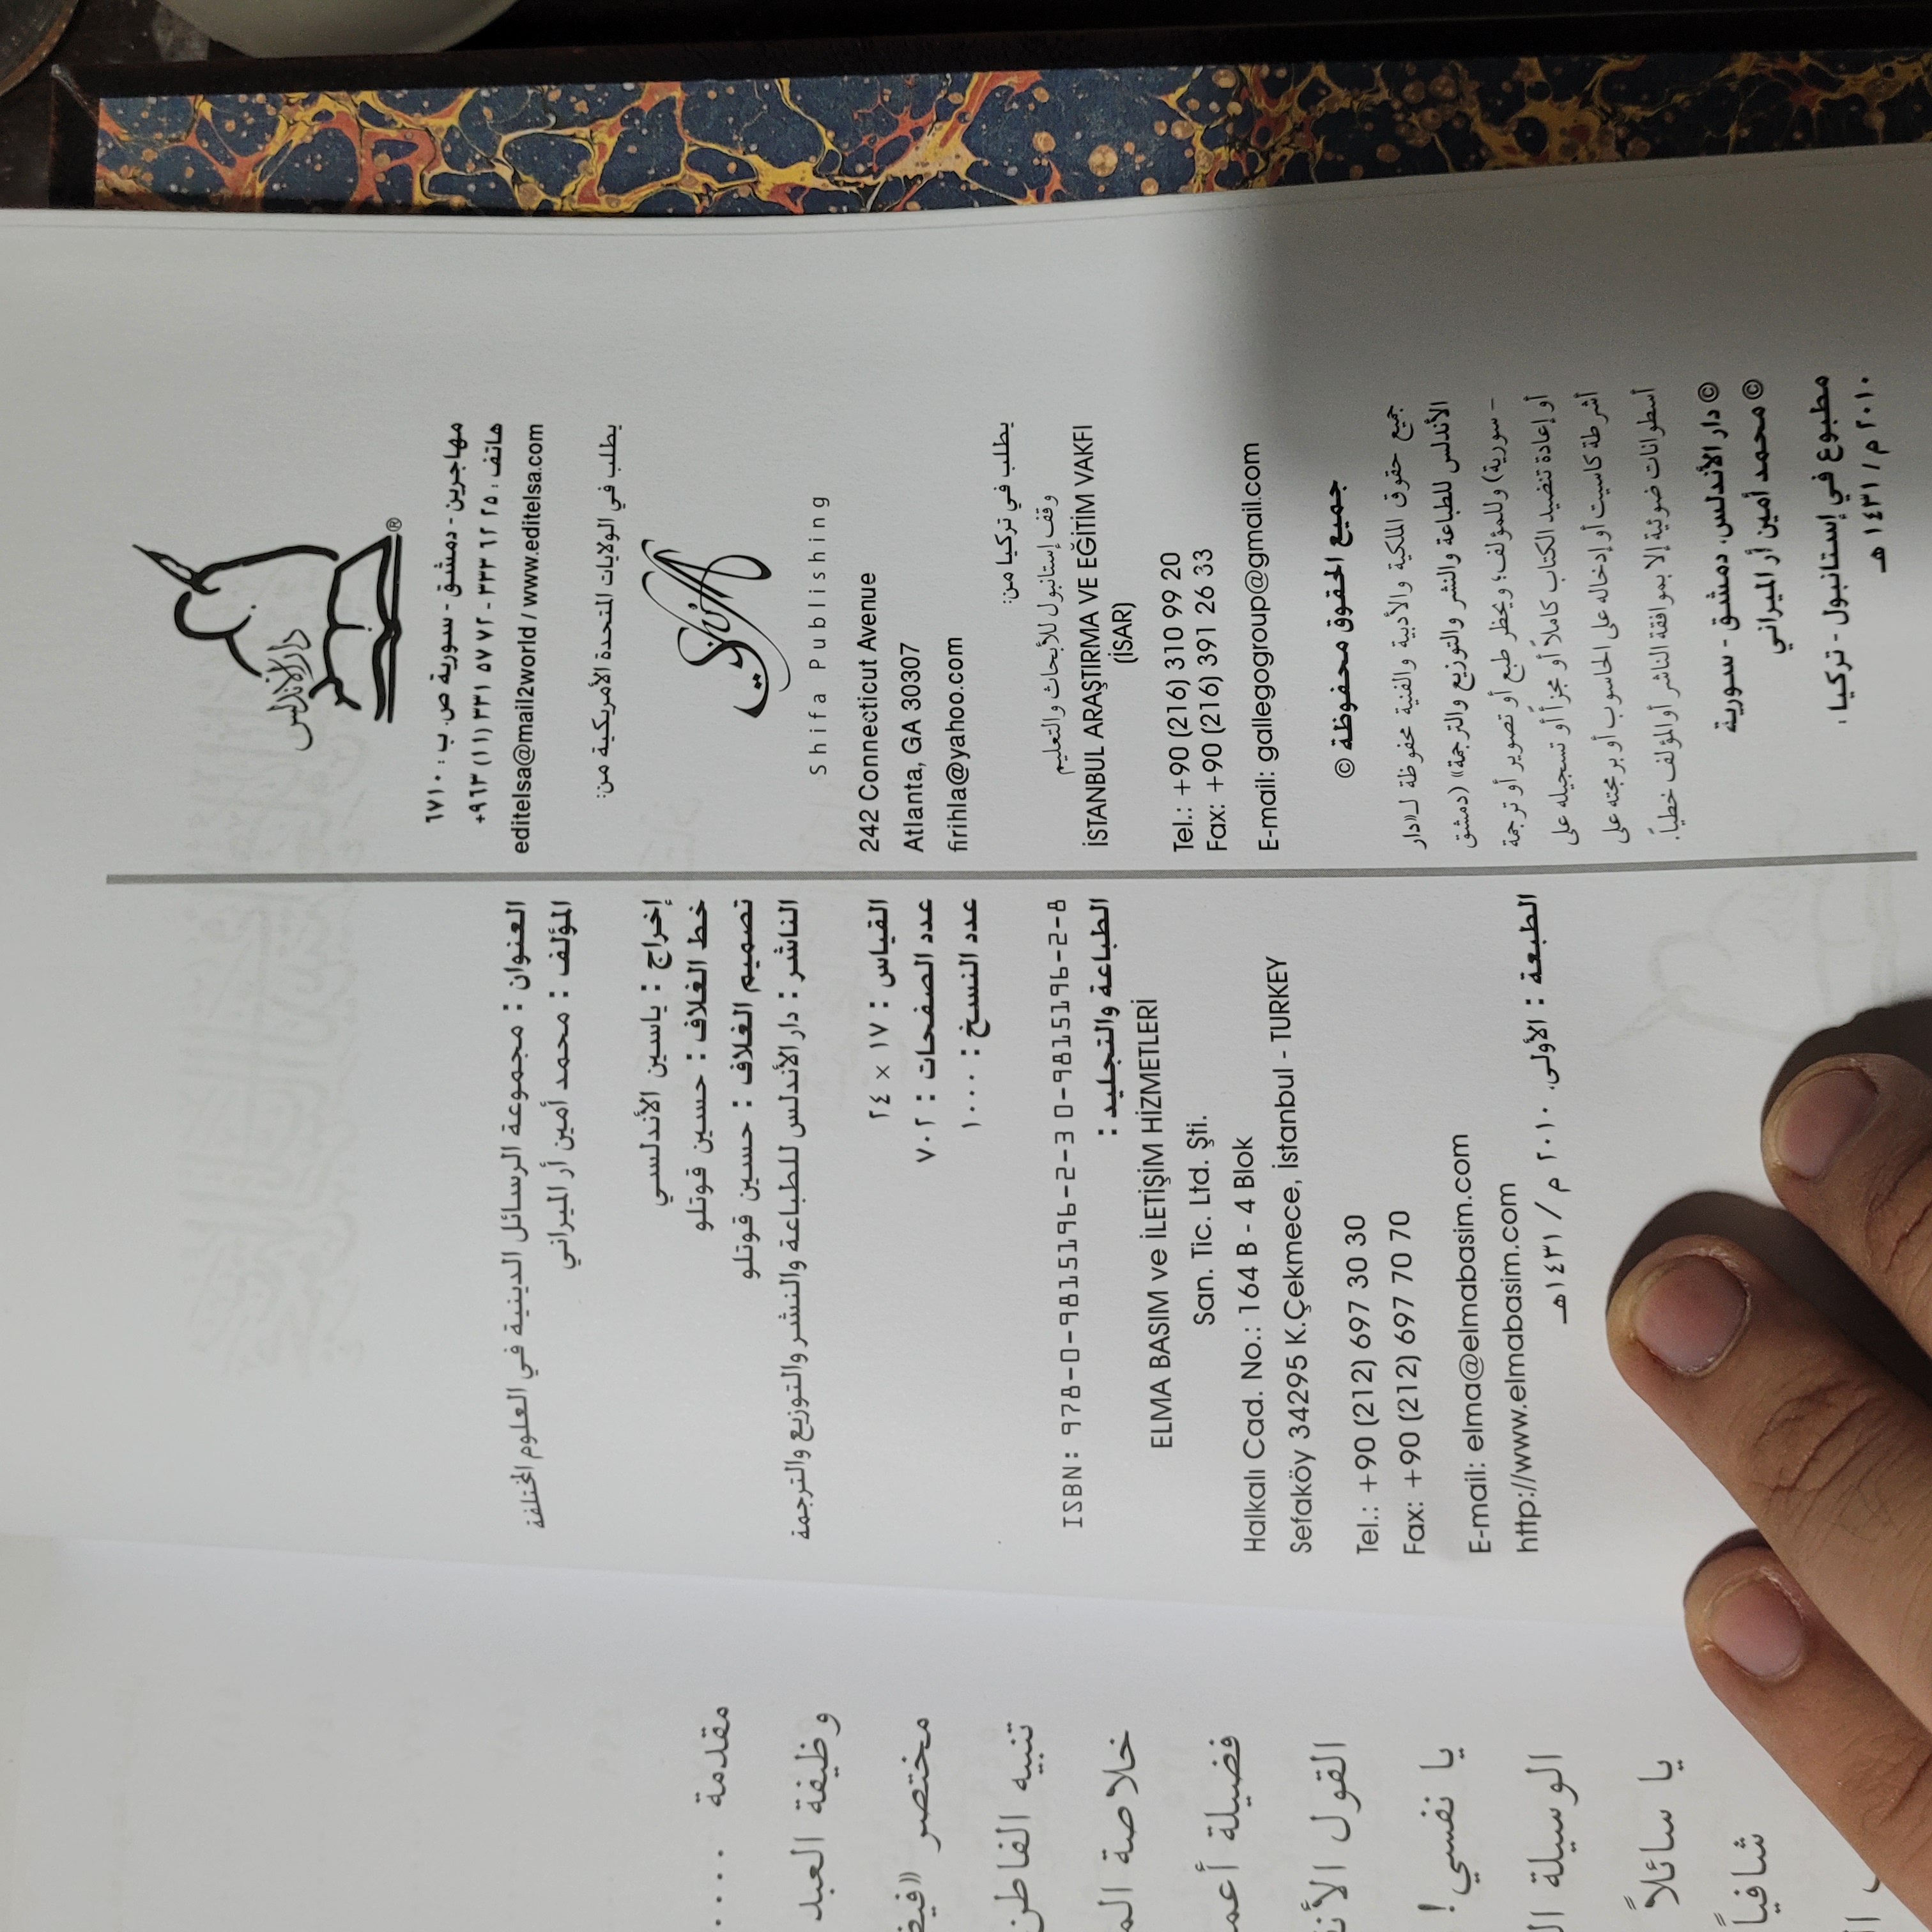 العنوان : مجموعة الرسائل الدينية في العلوم المختلفة
المؤلف : محمد أمين أر الميراني
إخراج : ياسين الأندلسي
خط الغلاف : حسين قوتلو
تصميم الغلاف : حسين قوتلو
الناشر : دار الأندلس للطباعة والنشر والتوزيع والترجمة
القياس : ١٧ × ٢٤
عدد الصفحات : ٧٠٢
عدد النسخ : ١٠٠٠
ISBN: 978-0-9815196-2-3 0-9815196-2-8
الطباعة والتجليد :
ELMA BASIM ve İLETİŞİM HİZMETLERİ
San. Tic. Ltd. Şti.
Halkalı Cad. No.: 164 B - 4 Blok
Sefaköy 34295 K.Çekmece, İstanbul - TURKEY
Tel.: +90 (212) 697 30 30
Fax: +90 (212) 697 70 70
E-mail: elma@elmabasim.com
http://www.elmabasim.com
الطبعة : الأولى. ٢٠١٠ م / ١٤٣١هـ
دار الأندلس
®
مهاجرين - دمشق - سورية ص. ب : ٦٧١٠
هاتف : ٢٥ ٦٢ ٣٣٣ - ٧٢ ٥٧ ٣٣١ (١١) ٩٦٣+
editelsa@mail2world / www.editelsa.com
يطلب في الولايات المتحدة الأمريكية من:
Shifa
Shifa Publishing
242 Connecticut Avenue
Atlanta, GA 30307
firihla@yahoo.com
يطلب في تركيا من:
وقف إستانبول للأبحاث والتعليم
İSTANBUL ARAŞTIRMA VE EĞİTİM VAKFI
(İSAR)
Tel.: +90 (216) 310 99 20
Fax: +90 (216) 391 26 33
E-mail: gallegogroup@gmail.com
جميع الحقوق محفوظة ©
جميع حقوق الملكية والأدبية والفنية محفوظة لـ«دار
الأندلس للطباعة والنشر والتوزيع والترجمة» (دمشق
- سورية) وللمؤلف؛ ويحظر طبع أو تصوير أو ترجمة
أو إعادة تنضيد الكتاب كاملاً أو مجزأً أو تسجيله على
أشرطة كاسيت أو إدخاله على الحاسوب أو برمجته على
أسطوانات ضوئية إلا بموافقة الناشر أو المؤلف خطياً.
© دار الأندلس. دمشق - سورية
© محمد أمين أر الميراني
مطبوع في إستانبول - تركيا.
٢٠١٠ م / ١٤٣١ هـ
مقدمة ....
وظيفة العبد
مختصر «فيض
تنبيه الفاطن
خلاصة
فضيلة
القول
يا نفسي !
الوسيلة
يا سائلاً
شافياً